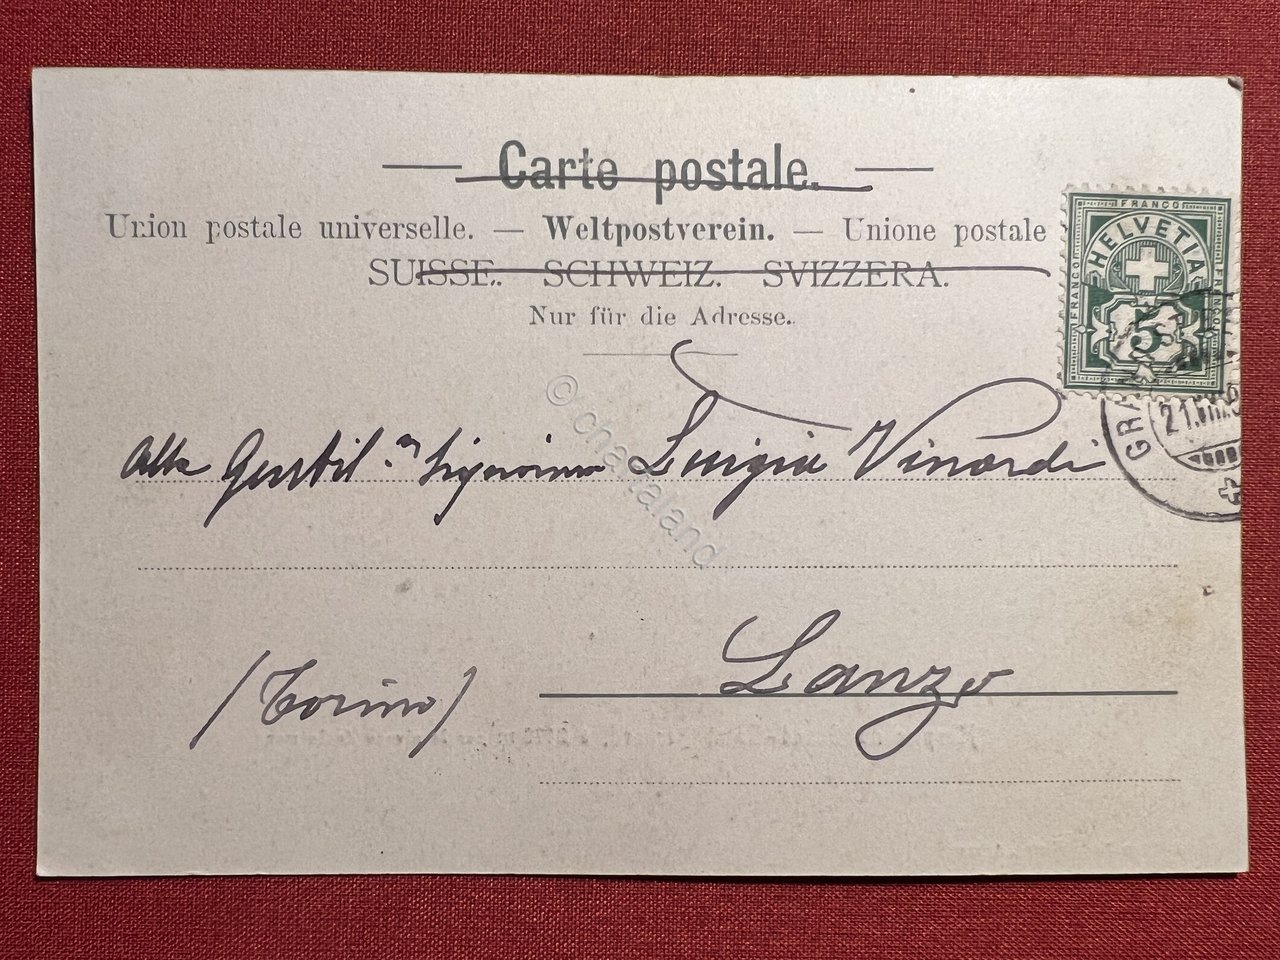 Carte postale.
Union postale universelle. — Weltpostverein. — Unione postale
SUISSE. SCHWEIZ. SVIZZERA.
Nur für die Adresse.
FRANCO
HELVETIA
FRANCO
FRANCO
5
21.VII.9
© chartaland
Alla Gentil.ma Signorina Luigia Vinardi
Lanzo
(Torino)